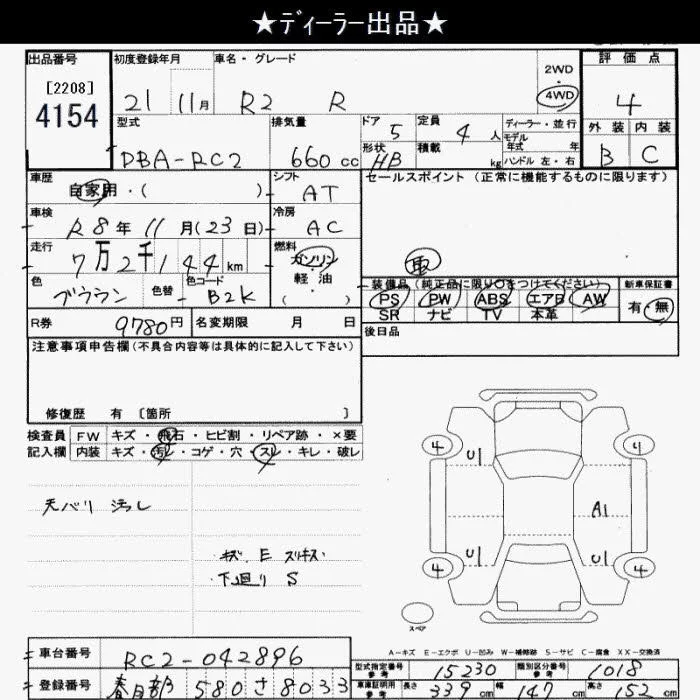 ★ディーラー出品★
出品番号
[2208]
4154
初度登録年月
21 11月
車名・グレード
R2 R
2WD
4WD
評価点
4
外装 内装
B C
型式
DBA-RC2
排気量
660 cc
ドア 5
形状 HB
定員 4 人
積載 kg
ディーラー・並行
モデル
年式 年
ハンドル 左・右
車歴
自家用・( )
シフト
AT
セールスポイント (正常に機能するものに限ります)
取
車検
R8年11月(23日)
冷房
AC
走行
7万2千144km
燃料
ガソリン
軽・油
( )
色
ブラウン
色替
色コード
B2K
装備品(純正品に限り○をつけてください)
PS PW ABS エアB AW
SR ナビ TV 本革
新車保証書
有・無
R券 9780円
名変期限 月 日
後日品
注意事項申告欄(不具合内容等は具体的に記入して下さい)
修復歴 有 [箇所 ]
検査員
記入欄
FW キズ・飛石・ヒビ割・リペア跡・×要
内装 キズ・汚レ・コゲ・穴・スレ・キレ・破レ
天バリ 汚レ
キズ、E スリキズ
下廻り S
4 U1 4
A1
4 U1 U1 4
スペア
A-キズ E-エクボ U-凹み W-補修跡 S-サビ C-腐食 XX-交換済
車台番号
RC2-042896
登録番号
春日部 580 さ 8033
型式指定番号
参考
15230
類別区分番号
参考
1018
車庫証明用
参考
長さ 339 cm 幅 147 cm 高さ 152 cm